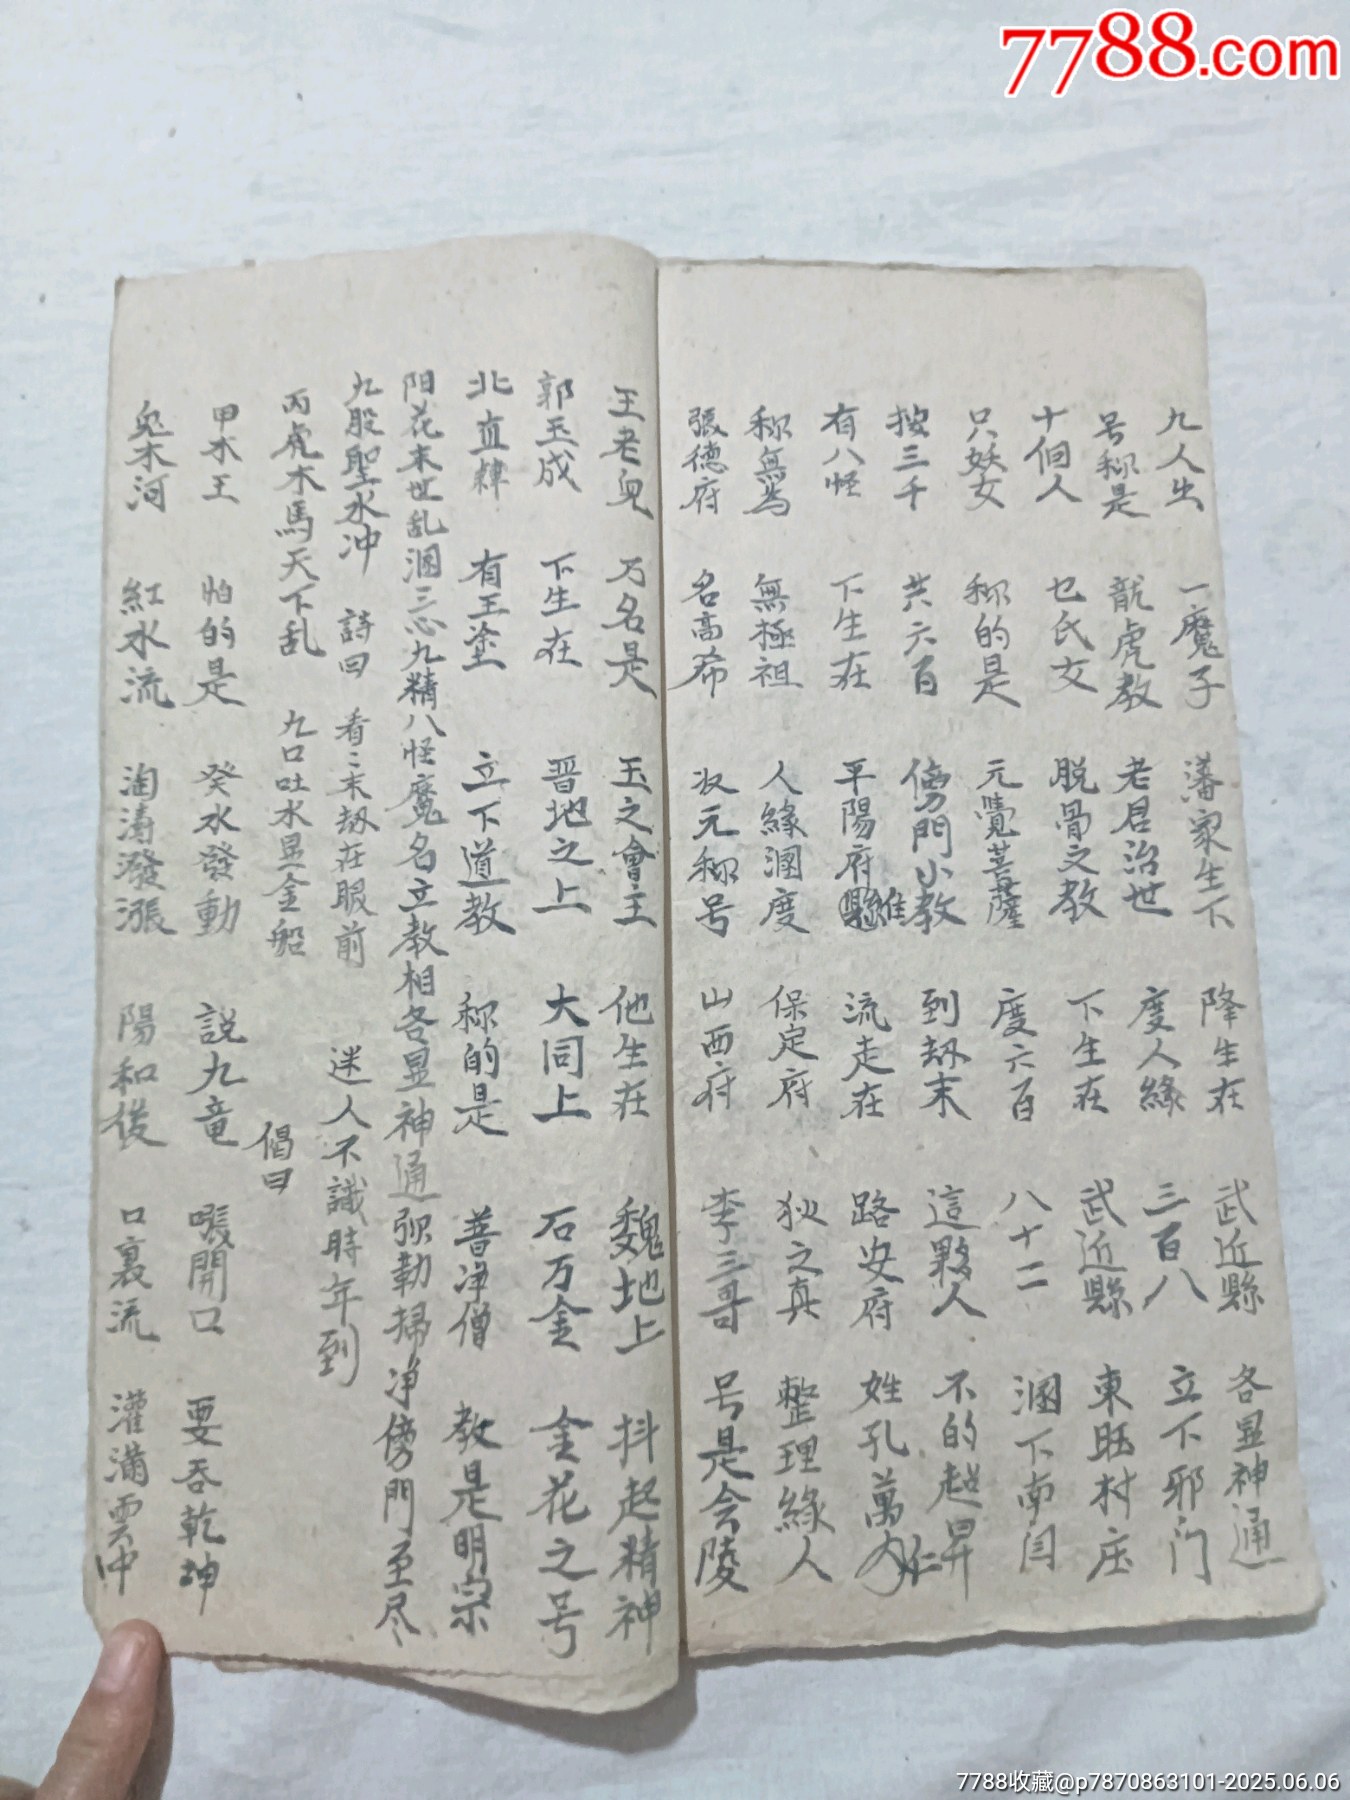 7788.com
九人出 一魔子 潘家生下 降生在 武近縣 各显神通
号称是 龍虎教 老君治世 度人緣 三百八 立下邪门
十個人 乜氏女 脱骨之教 下生在 武近縣 東旺村庄
只妖女 称的是 元覺菩薩 度六百 八十二 溷下南闫
按三千 共六百 傍門小教 到刼末 這夥人 不的超昇
有八怪 下生在 平陽府縣 流走在 路安府 姓孔萬
称無為 無極祖 人緣溷度 保定府 狄之真 整理緣人
張德府 名高希 状元称号 山西府 李三哥 号是会陵
王老皃 乃名是 玉之會主 他生在 魏地上 抖起精神
郭玉成 下生在 晋地之上 大同上 石万金 金花之号
北直隸 有王塗 立下道教 称的是 普净僧 教是明宗
阳花末世乱溷三心九精八怪魔名立教相各显神通弥勒掃净傍門至尽
九股聖水冲 詩曰 看〻末刼在眼前 迷人不識時年到
丙虎木馬天下乱 九口吐水显金船 偈曰
甲木王 怕的是 癸水發動 説九竜 張開口 要吞乾坤
鬼木河 紅水流 淘濤潑漲 陽和後 口裏流 灌满雲中
7788收藏@p7870863101-2025.06.06